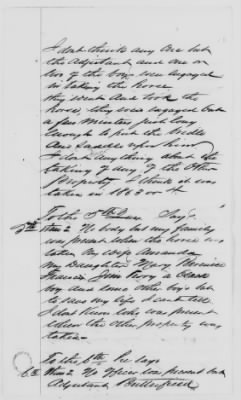 I dont think any One but
the Adjutant and one or
two of the boys was engaged
in taking the horse
they went And took the
horse, they was engaged but
a few Minutes just long
enough to put the bridle
And saddle upon him
I dont anything about the
taking of any of the Other
Property I think it was
taken in 1863 or 4
To the 5th Says
5th No body but my family
was present when the horse was
taken My wife Amanda
My Daughter Mary
Francis John Perry a black
boy and some other boys but
to save my life I cant tell
I dont know who was present
when the other property was
taken
To the 6th he says
6th No Officer was present but
Adjutant Butterfield